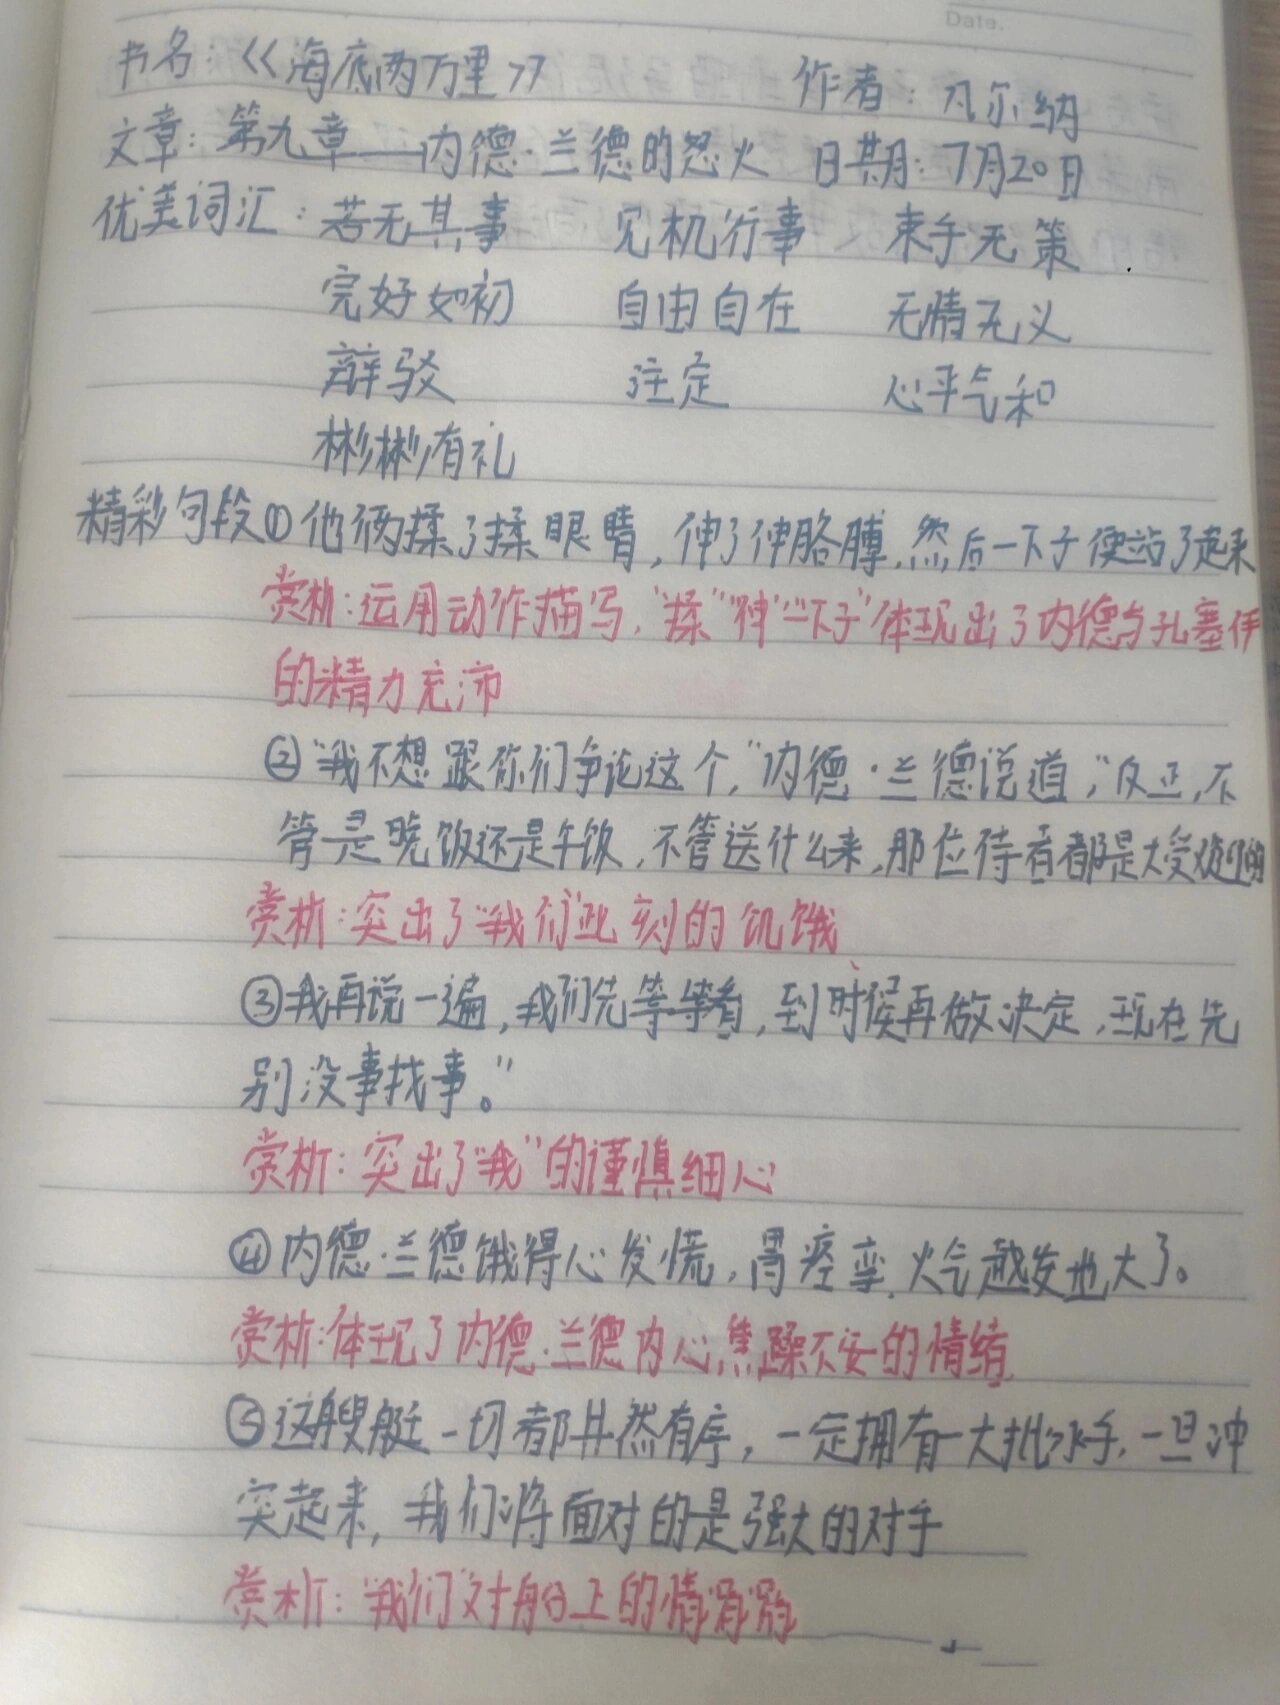 Date.
书名:《海底两万里》 作者:凡尔纳
文章:第九章——内德·兰德的怒火 日期:7月20日
优美词汇:若无其事 见机行事 束手无策
完好如初 自由自在 无情无义
辩驳 注定 心平气和
彬彬有礼
精彩句段①他俩揉了揉眼睛,伸了伸胳膊,然后一下子便站了起来
赏析:运用动作描写,“揉”“伸”“一下子”体现出了内德与孔塞伊
的精力充沛
②“我不想跟你们争论这个,”内德·兰德说道,“反正,不
管是晚饭还是午饭,不管送什么来,那位侍者都是大受欢迎的
赏析:突出了“我们”此刻的饥饿
③我再说一遍,我们先等等看,到时候再做决定,现在先
别没事找事。”
赏析:突出了“我”的谨慎细心
④内德·兰德饿得心发慌,胃痉挛,火气越发地大了。
赏析:体现了内德·兰德内心焦躁不安的情绪
⑤这艘艇一切都井然有序,一定拥有一大批水手,一旦冲
突起来,我们将面对的是强大的对手
赏析:“我们”对船上的情